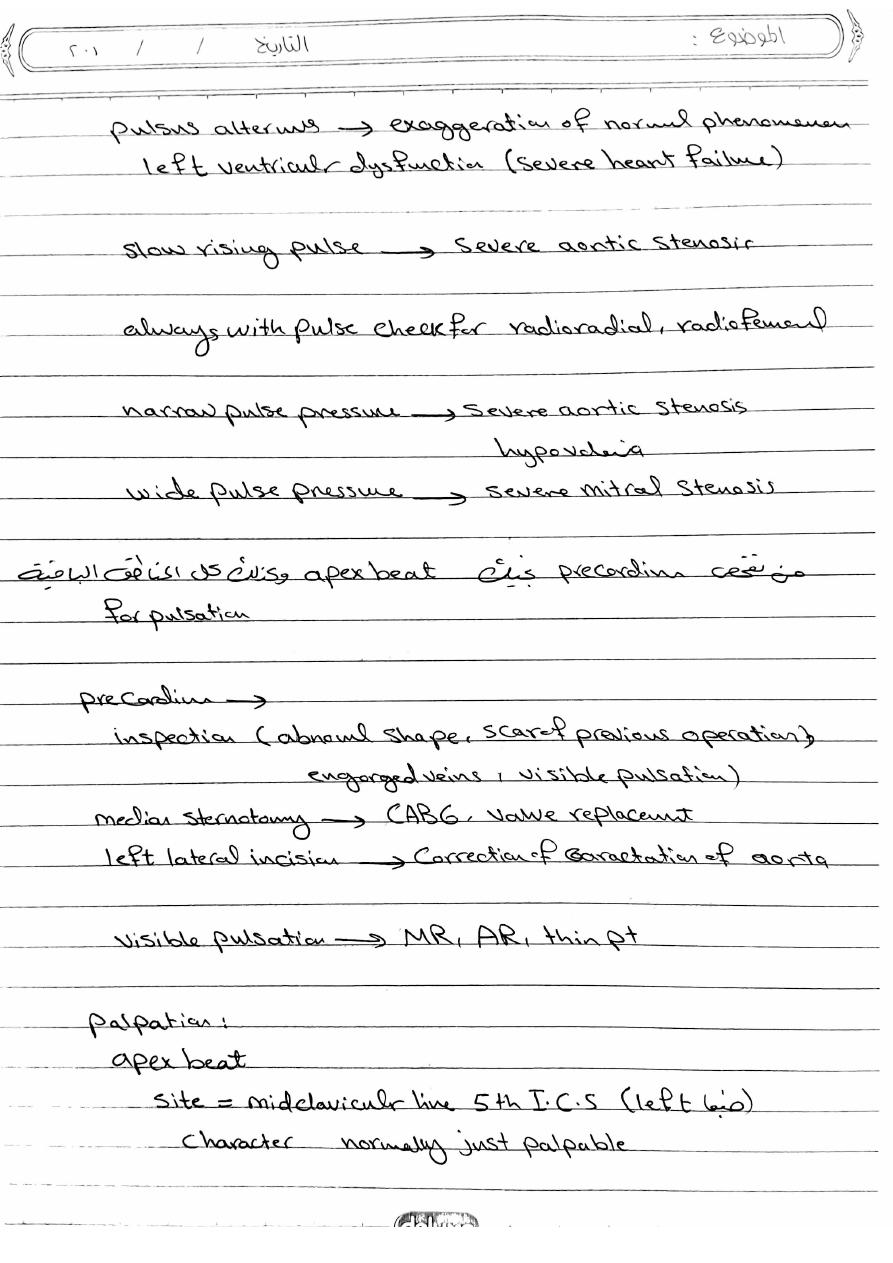 الموضوع :
التاريخ / / ٢٠١
pulsus alternus → exaggeration of normal phenomenon
left ventricular dysfunction (severe heart failure)
slow rising pulse → severe aortic stenosis
always with pulse check for radioradial, radiofemoral
narrow pulse pressure → severe aortic stenosis
hypovolemia
wide pulse pressure → severe mitral stenosis
من precordium apex beat وكذلك كل المناطق الباقية
for pulsation
precordium →
inspection (abnormal shape, scar of previous operation,
engorged veins, visible pulsation)
median sternotomy → CABG, valve replacement
left lateral incision → Correction of coaractation of aorta
visible pulsation → MR, AR, thin pt
palpation:
apex beat
site = midclavicular line 5th I.C.S (left)
character normally just palpable